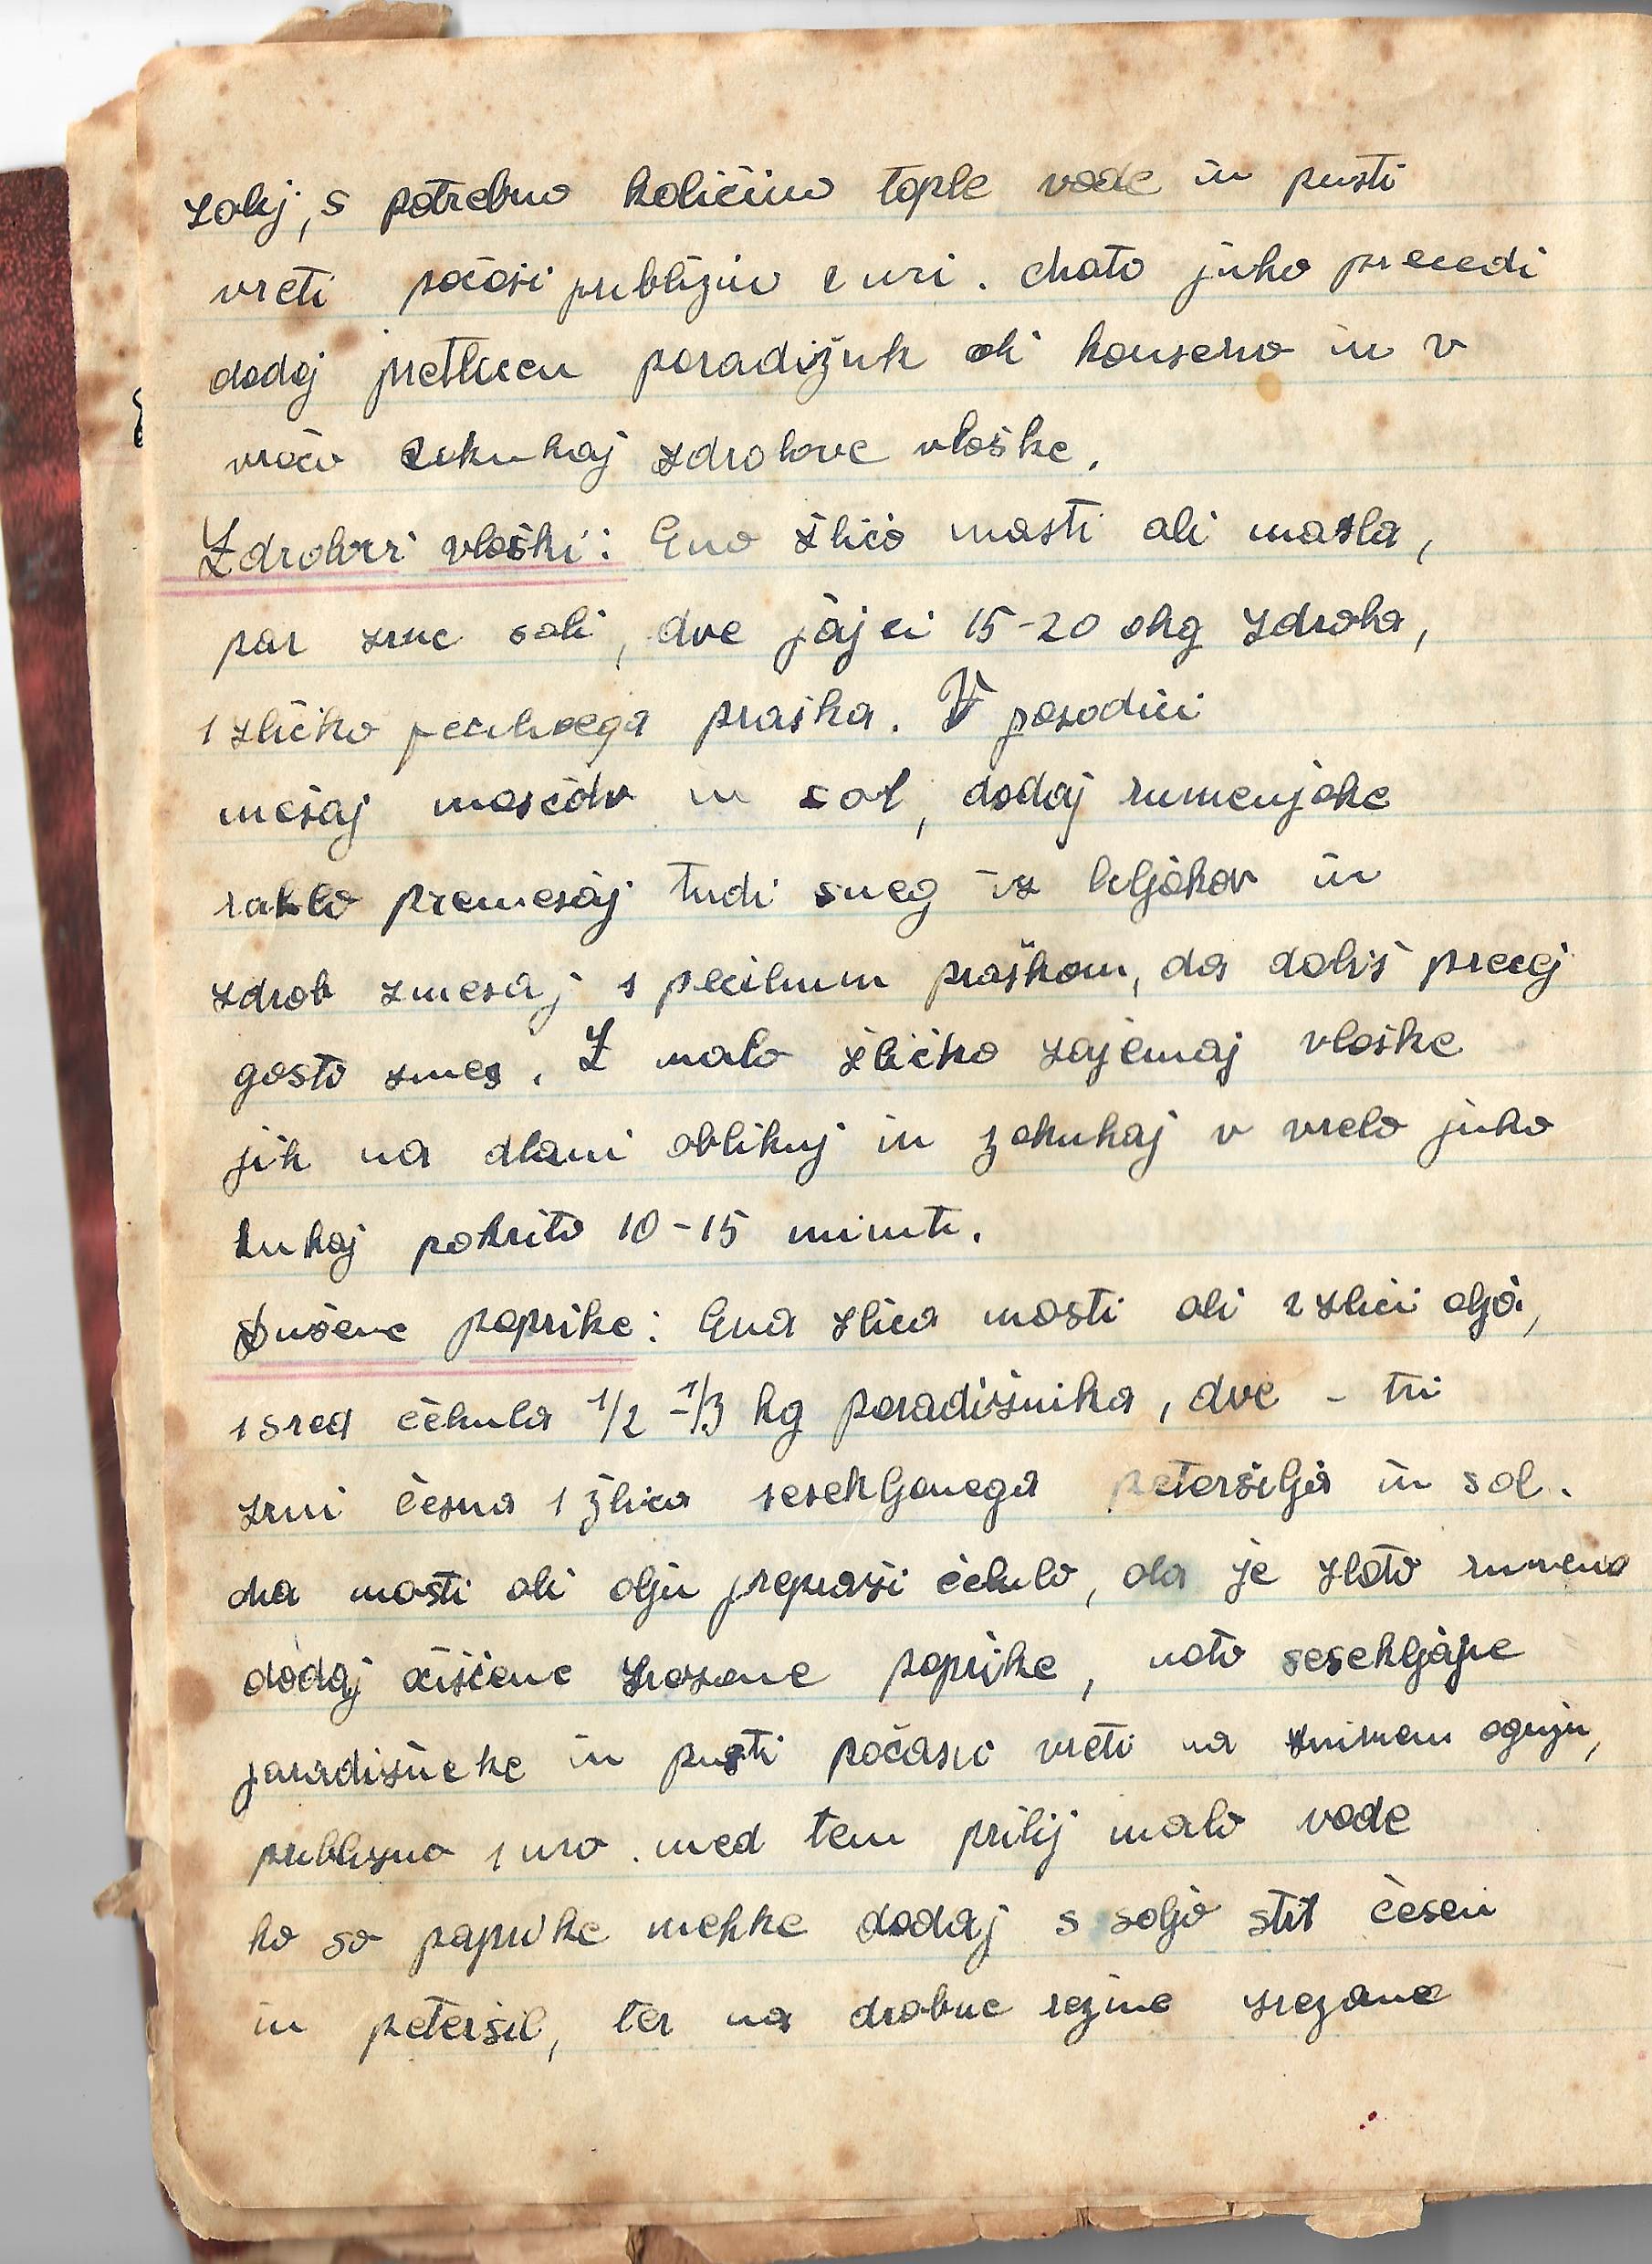 zalij, s potrebno količino tople vode in pusti
vreti počasi približno 2 uri. Nato juho precedi
dodaj pretlačen paradižnik ali konservo in v
vročo zakuhaj zdrobove vloške.
Zdrobovi vloški: Eno žlico masti ali masla,
par zrnc soli, dve jajci 15-20 dkg zdroba,
1 žličko pecilnega praška. V posodici
mešaj maščobo in sol, dodaj rumenjake
rahlo premešaj tudi sneg iz beljakov in
zdrob zmešaj s pecilnim praškom, da dobiš precej
gosto zmes. Z malo žličko zajemaj vloške
jih na dlani oblikuj in zakuhaj v vrelo juho
kuhaj pokrito 10-15 minut.
Dušene paprike: Ena žlica masti ali 2 žlici olja,
1 sred čebula 1/2 - 1/3 kg paradižnika, dve - tri
zrni česna 1 žlica sesekljanega peteršilja in sol.
Na masti ali olju prepraži čebulo, da je zlato rumena
dodaj očiščene zrezane paprike, nato sesekljane
paradižneke in pusti počasi vreti na zmirnem ognju,
približno 1 uro. med tem prilij malo vode
ko so paprike mehke dodaj s soljo strt česen
in peteršil, ter na drobne rezine zrezane